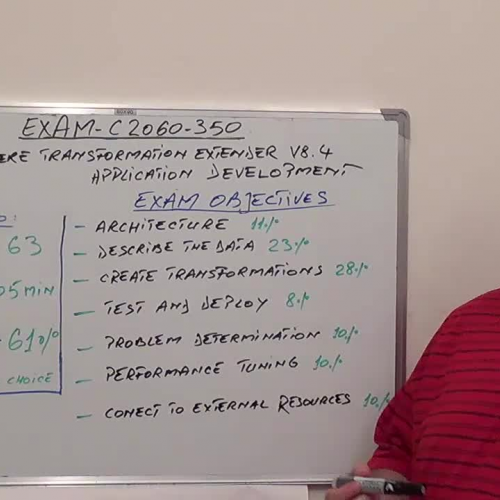 EXAM-C2060-350
ERE TRANSFORMATION EXTENDER V8.4
APPLICATION DEVELOPMENT
EXAM OBJECTIVES
- ARCHITECTURE 11%
63
- DESCRIBE THE DATA 23%
- CREATE TRANSFORMATIONS 28%
05 MIN
- TEST AND DEPLOY 8%
61%
- PROBLEM DETERMINATION 10%
CHOICE
- PERFORMANCE TUNING 10%
- CONECT TO EXTERNAL RESOURCES 10%